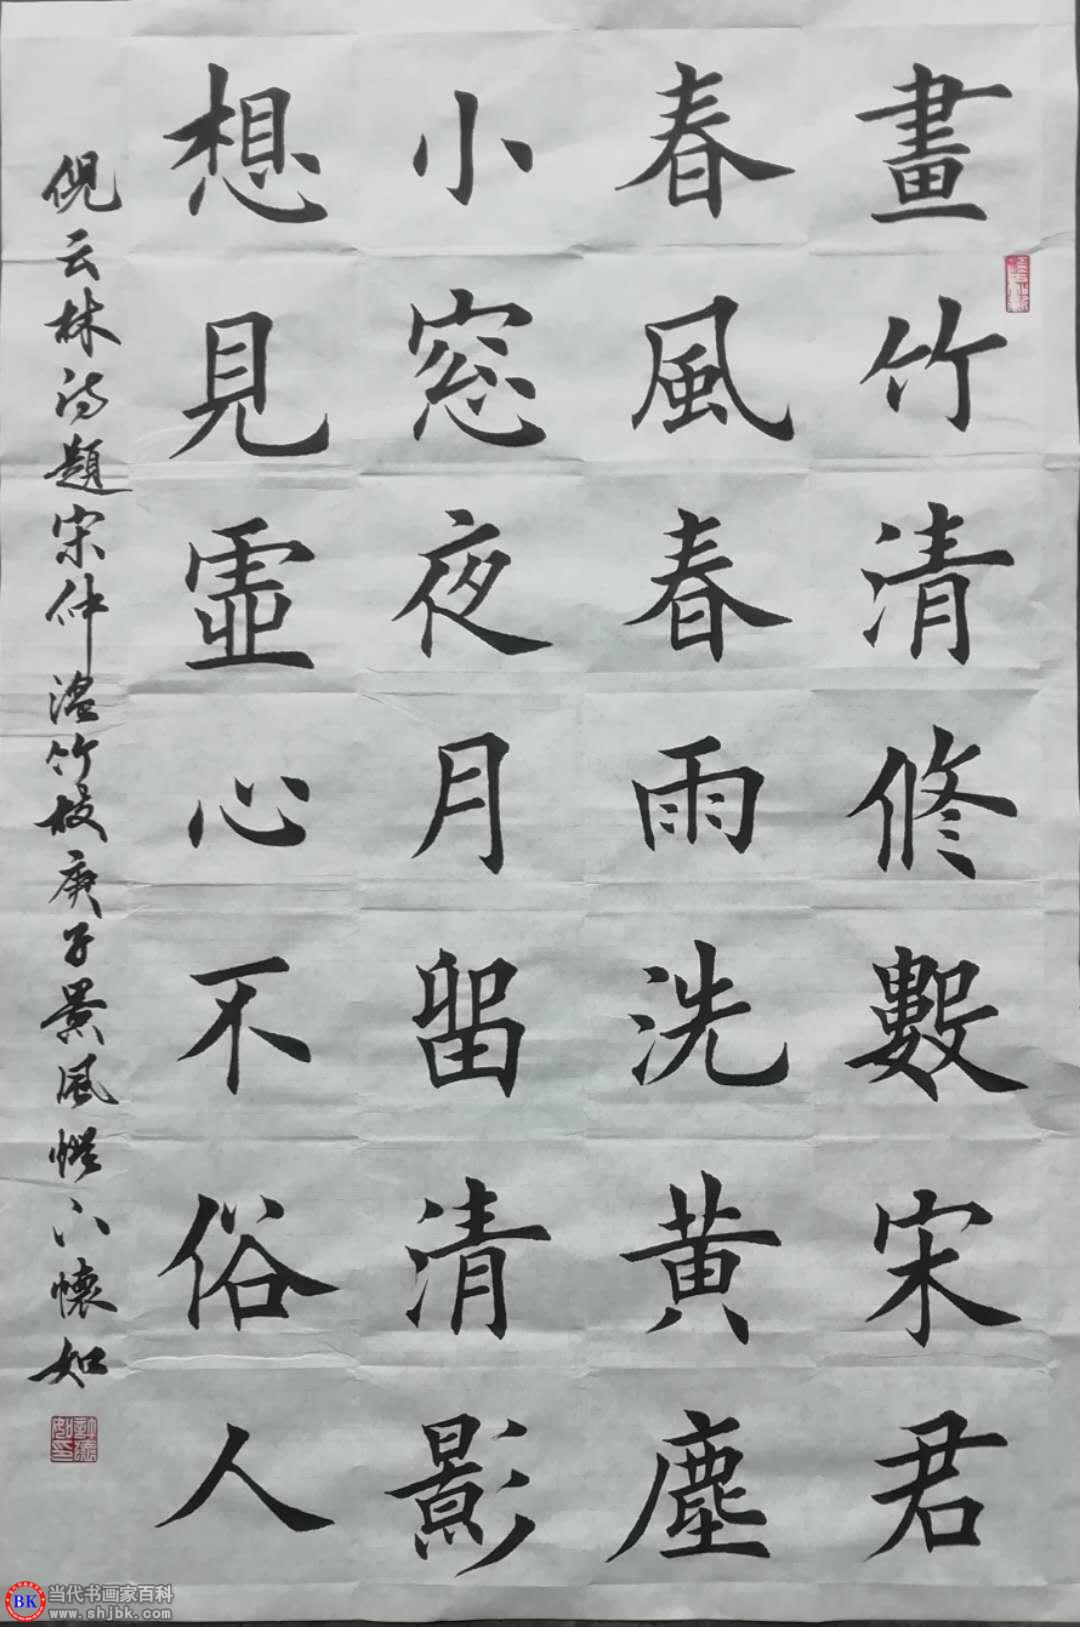 畫竹清修數宋君
春風春雨洗黄塵
小窓夜月留清影
想見虛心不俗人
倪云林诗題宋仲温竹枝庚子景風懷如
BK
当代书画家百科
www.shjbk.com